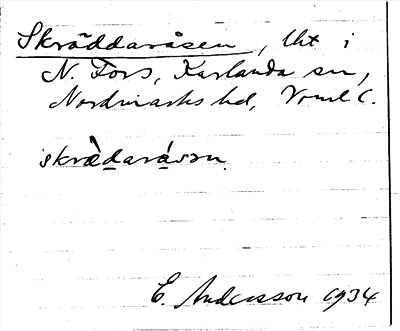 Skräddaråsen, lht i
N. Fors, Karlanda sn,
Nordmarks hd, Vrml C.
skræ̀daråsən
E. Andersson 1934